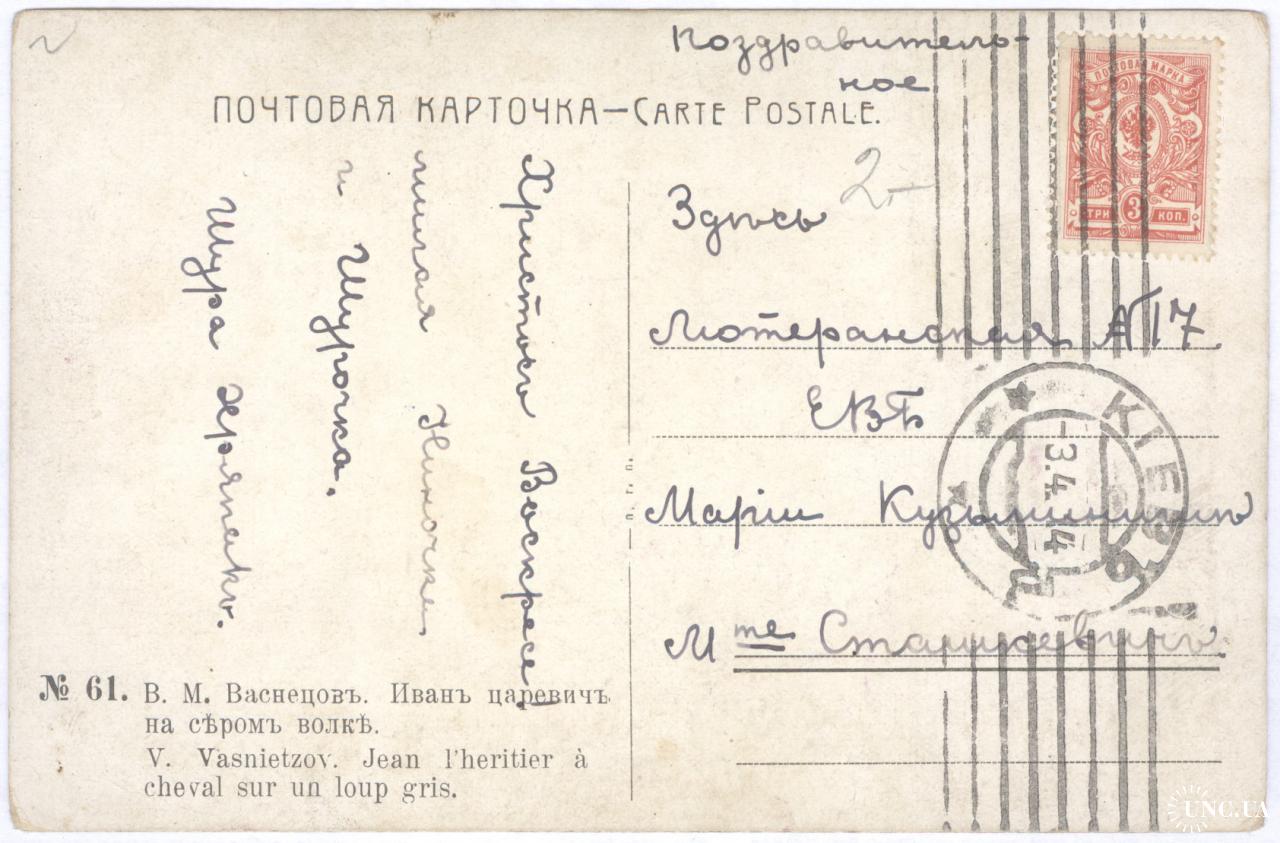 Поздравитель-
ное
ПОЧТОВАЯ КАРТОЧКА—CARTE POSTALE.
ПОЧТОВАЯ МАРКА
ТРИ 3 КОП.
2-
Христосъ Воскресе!
милая Ниночка
и Шурочка.
Шура
Здѣсь
Лютеранская № 17
ЕВБ
Маріи Кузьминичнѣ
Mme Станкевичъ.
КІЕВЪ
-3.4.14
№ 61. В. М. Васнецовъ. Иванъ царевичъ
на сѣромъ волкѣ.
V. Vasnietzov. Jean l'heritier à
cheval sur un loup gris.
UNC.UA